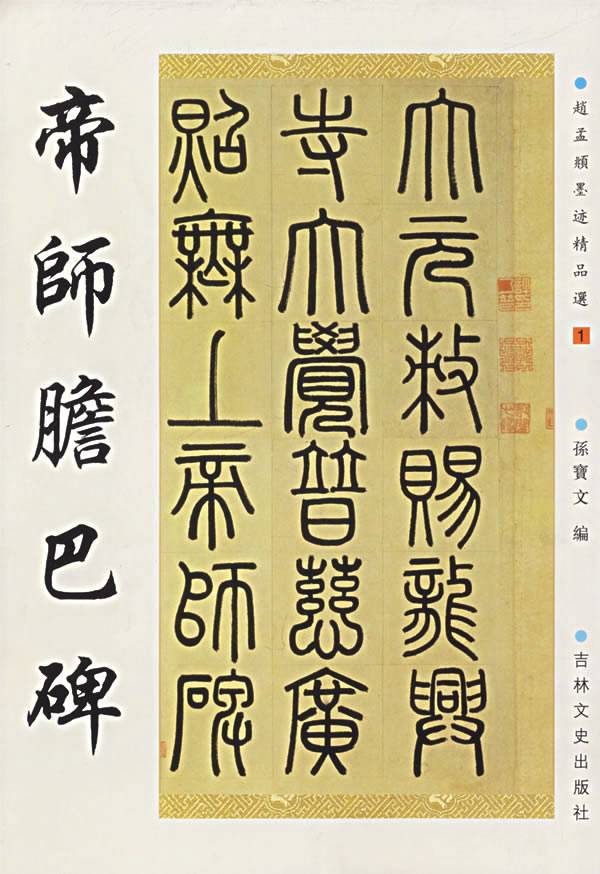 趙孟頫墨迹精品選 1
孫寶文 編
吉林文史出版社
大元敕賜龍興
寺大覺普慈廣
照無上帝師碑
帝師膽巴碑